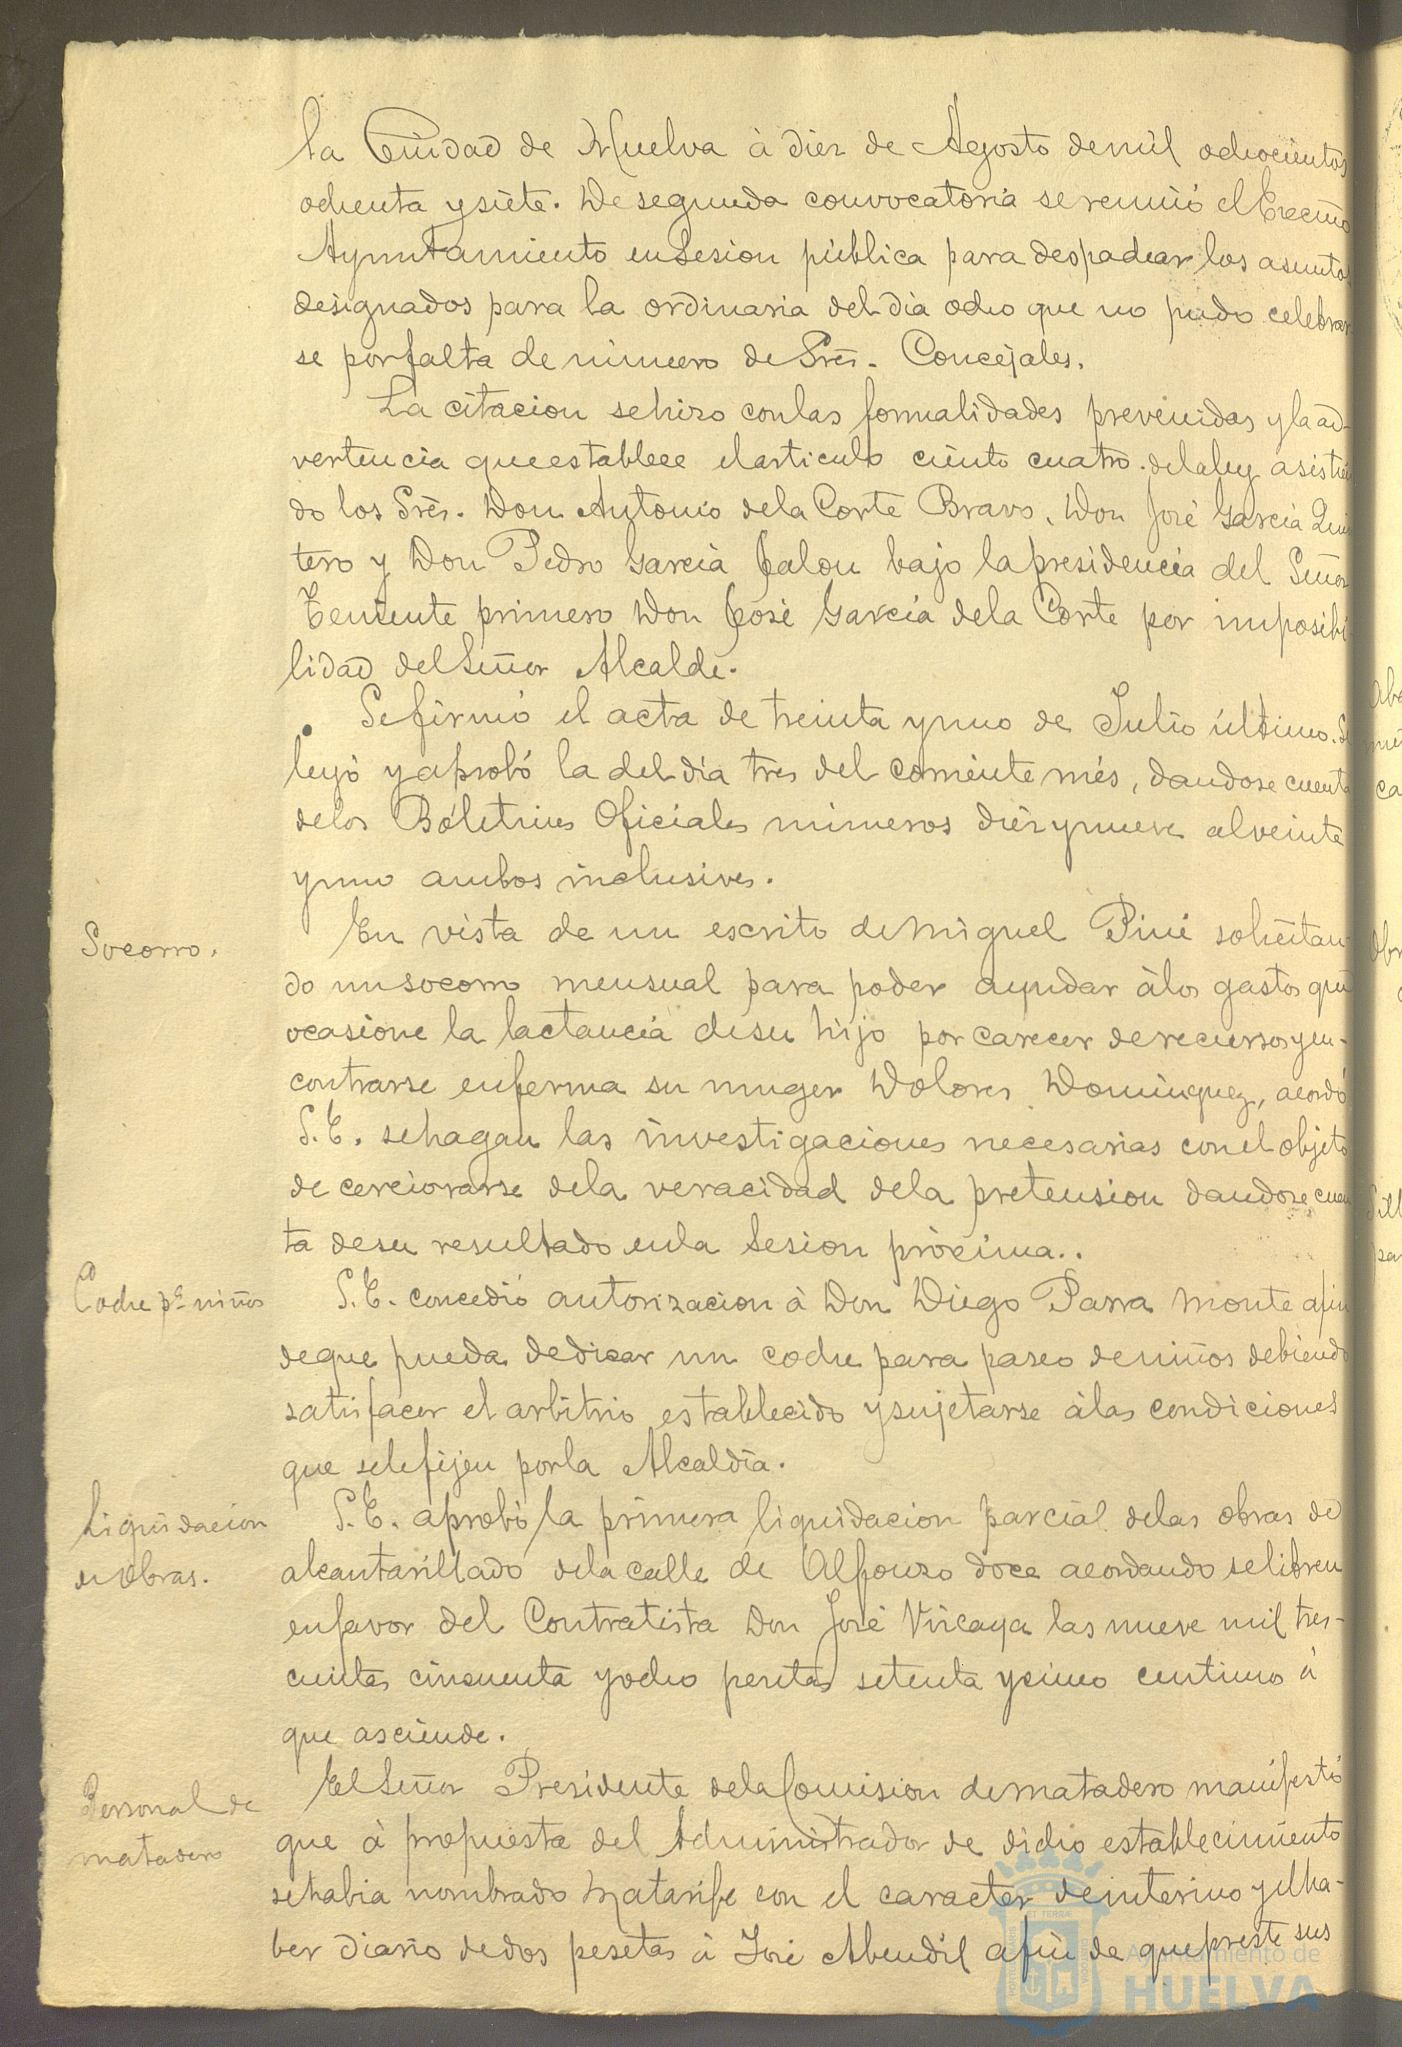 la Ciudad de Huelva à diez de Agosto de mil ochocientos
ochenta y siete. De segunda convocatoria se reunió el Excmo
Ayuntamiento en Sesion pública para despachar los asuntos
designados para la ordinaria del dia ocho que no pudo celebrar
se por falta de número de Sres. Concejales.
La citacion se hizo con las formalidades prevenidas y la ad-
vertencia que establece el articulo ciento cuatro de la ley asistien
do los Sres. Don Antonio de la Corte Bravo, Don José Garcia Quin
tero y Don Pedro Garcia Jalon bajo la presidencia del Señor
Teniente primero Don José Garcia de la Corte por imposibi
lidad del Señor Alcalde.
Se firmó el acta de treinta y uno de Julio último. Se
leyó y aprobó la del dia tres del corriente més, dandose cuenta
de los Boletines Oficiales números diez y nueve al veinte
y uno ambos inclusives.
Socorro.
En vista de un escrito de Miguel Piné solicitan-
do un socorro mensual para poder ayudar à los gastos que
ocasione la lactancia de su hijo por carecer de recursos y en-
contrarse enferma su muger Dolores Dominguez, acordó
S.E. se hagan las investigaciones necesarias con el objeto
de cerciorarse de la veracidad de la pretension dandose cuen
ta de su resultado en la Sesion pròcima..
Coche pª niños
S.E. concedió autorizacion à Don Diego Parra Monte a fin
de que pueda dedicar un coche para paseo de niños debiendo
satisfacer el arbitrio establecido y sujetarse à las condiciones
que se le fijen por la Alcaldia.
Liquidacion
de obras.
S.E. aprobó la primera liquidacion parcial de las obras de
alcantarillado de la calle de Alfonso doce acordando se libren
en favor del Contratista Don José Vizcaya las nueve mil tres-
cientas cincuenta y ocho pesetas setenta y cinco centimos à
que asciende.
Personal de
matadero
El Señor Presidente de la Comision de matadero manifestó
que à propuesta del Administrador de dicho establecimiento
se habia nombrado Matarife con el caracter de interino y el ha-
ber diario de dos pesetas à José Abendil a fin de que preste sus
Ayuntamiento de
HUELVA